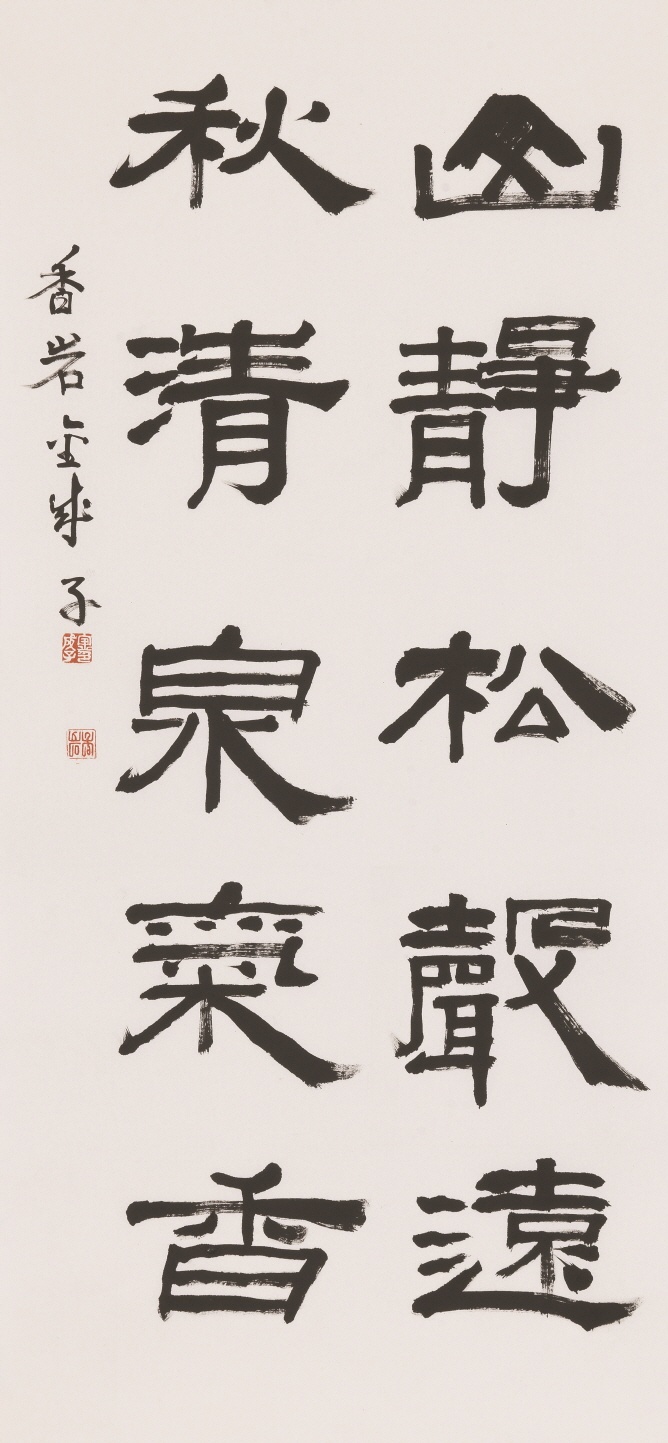 山靜松聲遠
秋清泉氣香
香岩金成子